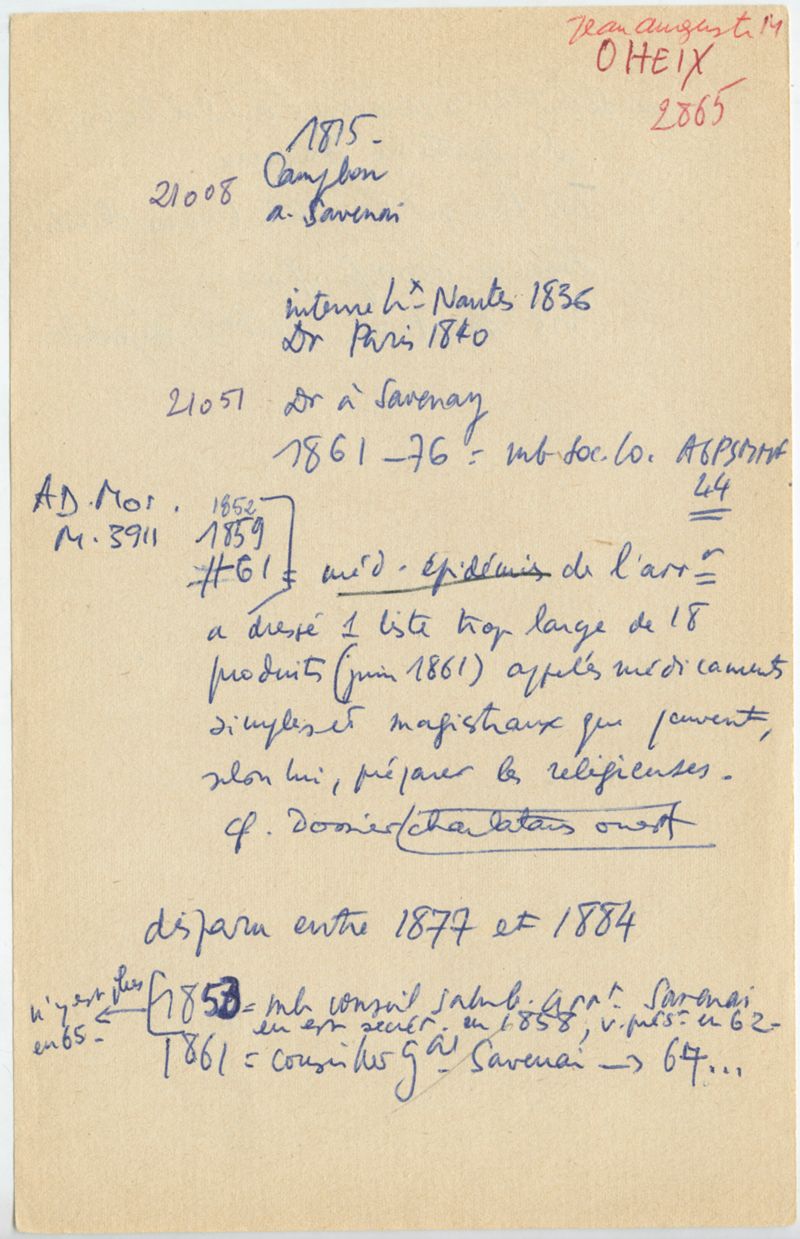 Jean Auguste M
OHEIX
2865
1815-
21008 Campbon
a. Savenai
interne hx- Nantes 1836
Dr Paris 1840
21051 Dr à Savenay
1861-76 = mb Soc. lo.
44
AD. Mor. 1852
M. 3911 1859
61 = méd. épidémies de l'arr
a dressé 1 liste trop large de 18
produits (juin 1861) appelés médicaments
simples et magistraux que peuvent,
selon lui, préparer les religieuses.
cf. Dossier charlatans ouest
disparu entre 1877 et 1884
n'y est plus 1853 = mb conseil salub. arrt. Savenai
en 65- en est secrét. en 1858, v. prést en 62-
1861 = conseiller gal Savenai → 67...